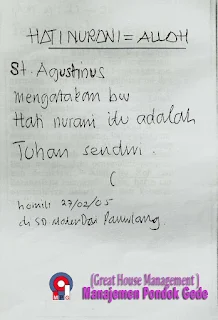 HATI NURANI = ALLOH
St. Agustinus
mengatakan bw
Hati nurani itu adalah
Tuhan sendiri.
(
homili 27/02/05
di SD Mater Dei Pamulang
(Great House Management)
Manajemen Pondok Gede